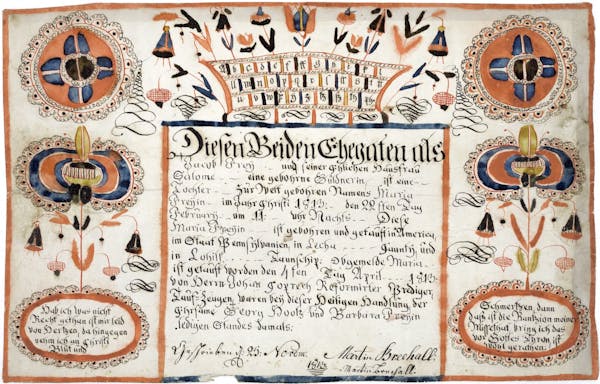 Diesen Beiden Ehegaten als
Jacob Frey und seiner ehlichen Hausfrau
Salome eine gebohrne Büdnerin ist eine
Tochter Zur Welt gebohren Namens Maria
Freyin im Jahr Christi 1812: den 22sten Tag
February um 11 uhr Nachts Diese
Maria Freyin ist gebohren und getauft in America,
im Staat Pensilvanien, in Lecha Gaunty, und
in Lohill Taunschip. Obgemelde Maria
ist getauft worden den 4ten Tag April 1812:
von Herrn Johan Reformirter Prediger,
Tauf-Zeugen, waren bey dieser Heiligen Handlung der
Georg und Barbara Freyin
ledigen Standes damals:
Geschrieben d 23. Novem. Martin Brechall:
1812 Martin Brechall
Hab ich was nicht
Recht gethan ist mir leid
von Hertzen, dahingegen
nehm ich an Christi
Blut und
Schmertzen, dann
daß ist die Rantzion meiner
Missethat bring ich das
vor Gottes Thron ist
wohl gerathen.